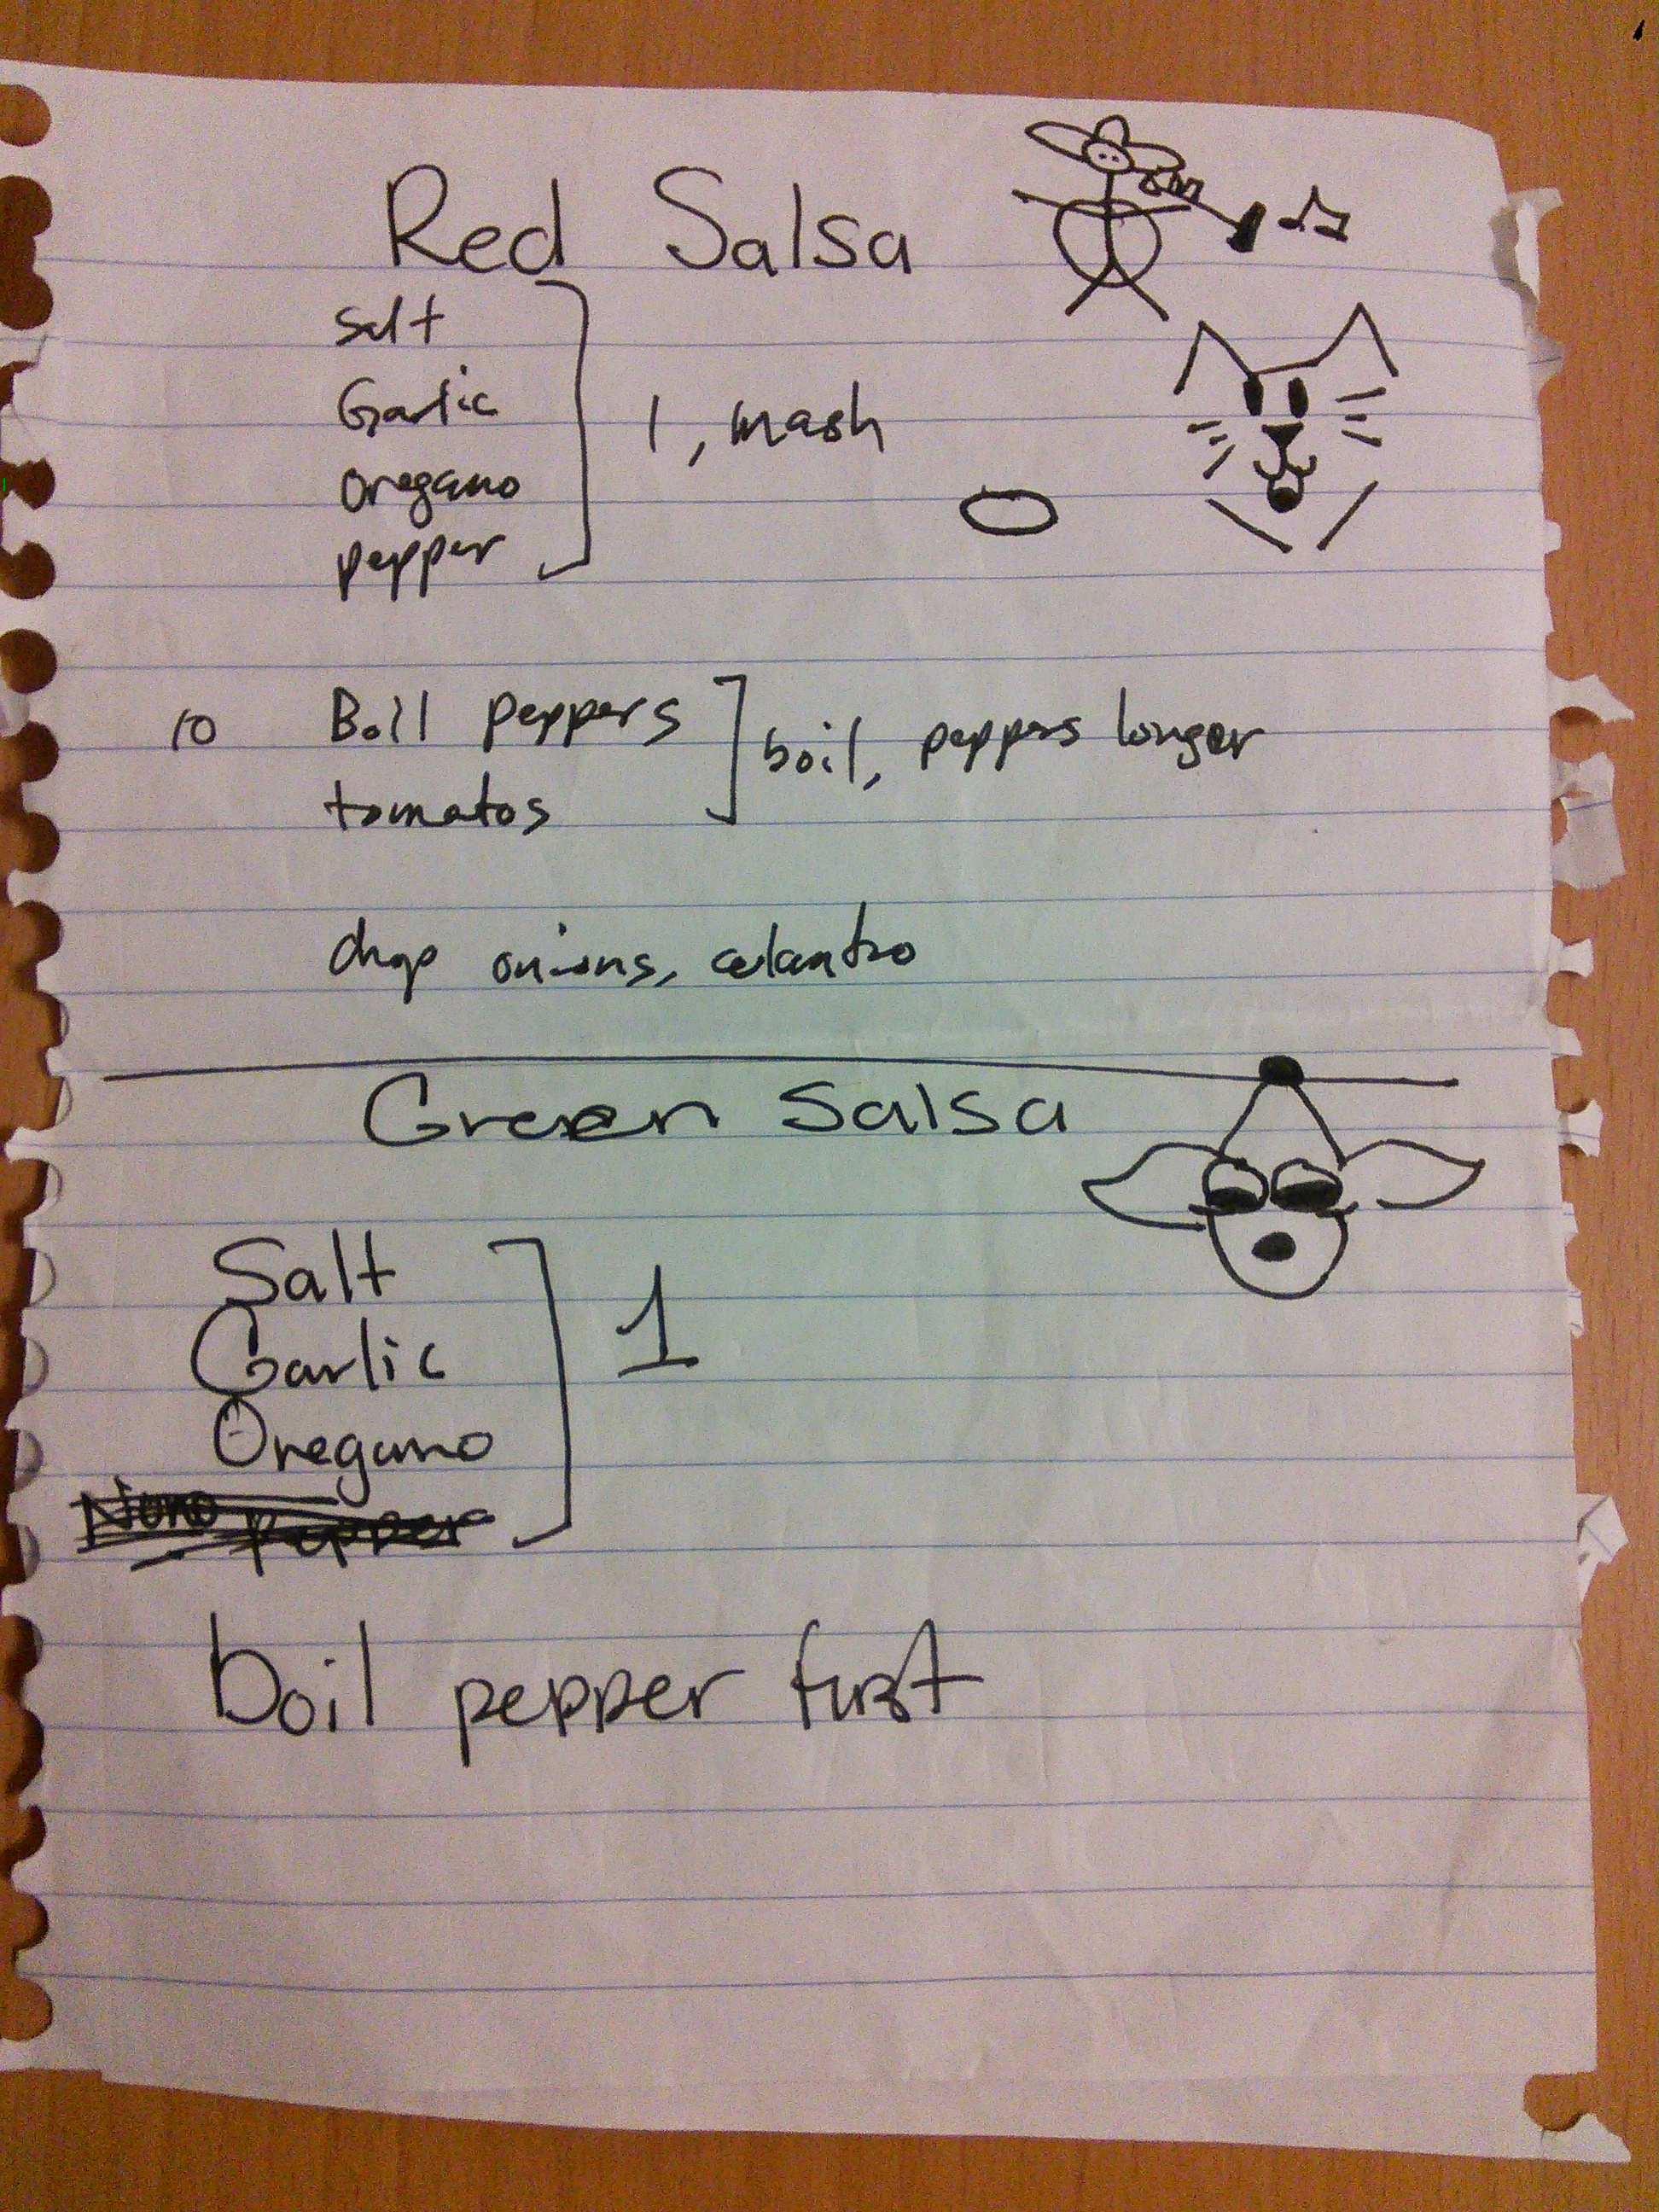 Red Salsa
Salt
Garlic
1, mash
oregano
pepper
10 Boil peppers
boil, peppers longer
tomatos
chop onions, celantro
Green Salsa
Salt
Garlic
1
Oregano
pepper
boil pepper first